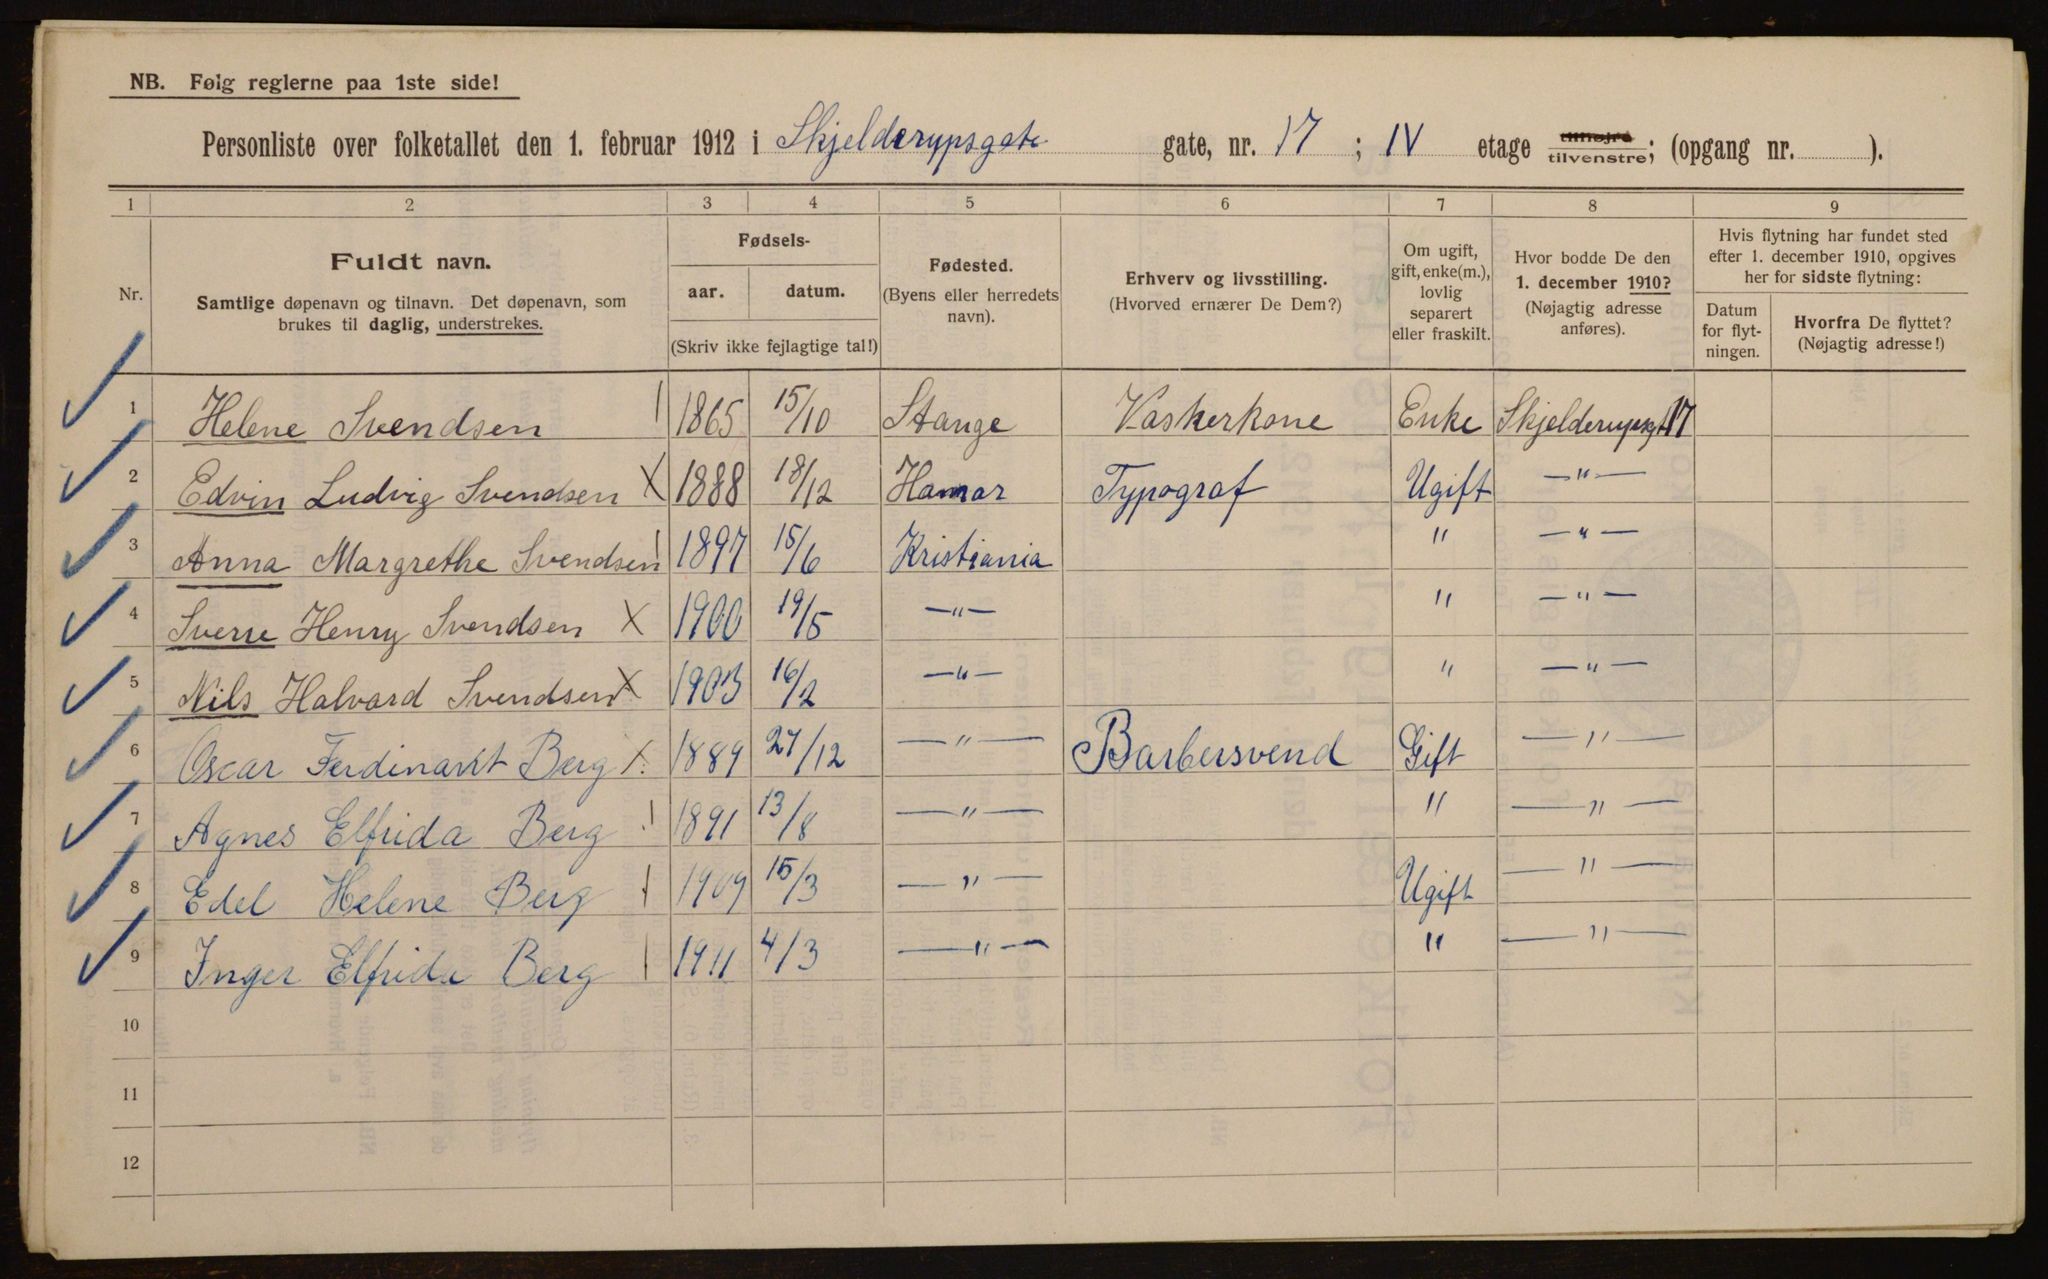 NB. Følg reglerne paa 1ste side!
Personliste over folketallet den 1. februar 1912 i Skjelderupsgate gate, nr. 17 ; IV etage tilhøjre tilvenstre; (opgang nr. ).
1 2 3 4 5 6 7 8 9
Nr.
Fuldt navn.
Samtlige døpenavn og tilnavn. Det døpenavn, som
brukes til daglig, understrekes.
Fødsels-
aar. datum.
(Skriv ikke fejlagtige tal!)
Fødested.
(Byens eller herredets
navn).
Erhverv og livsstilling.
(Hvorved ernærer De Dem?)
Om ugift,
gift, enke(m.),
lovlig
separert
eller fraskilt.
Hvor bodde De den
1. december 1910?
(Nøjagtig adresse
anføres).
Hvis flytning har fundet sted
efter 1. december 1910, opgives
her for sidste flytning:
Datum
for flyt-
ningen.
Hvorfra De flyttet?
(Nøjagtig adresse!)
1 Helene Svendsen | 1865 15/10 Stange Vaskerkone Enke Skjelderupsgt 17
2 Edvin Ludvig Svendsen X 1888 18/12 Hamar Typograf Ugift —"—
3 Anna Margrethe Svendsen | 1897 15/6 Kristiania " —"—
4 Sverre Henry Svendsen X 1900 19/5 —"— " —"—
5 Nils Halvard Svendsen X 1903 16/2 —"— " —"—
6 Oscar Ferdinant Berg X 1889 27/12 —"— Barbersvend Gift —"—
7 Agnes Elfrida Berg | 1891 13/8 —"— " —"—
8 Edel Helene Berg | 1909 15/3 —"— Ugift —"—
9 Inger Elfrida Berg | 1911 4/3 —"— " —"—
10
11
12